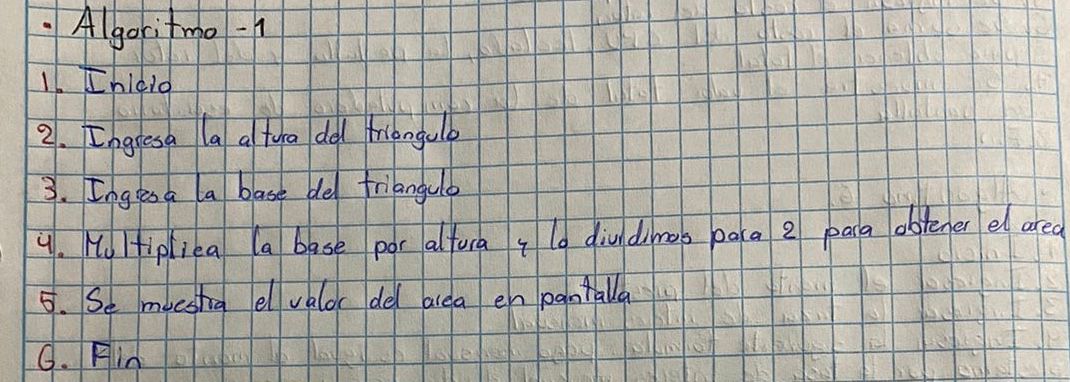 • Algoritmo - 1
1. Inicio
2. Ingresa la altura del triangulo
3. Ingresa la base del triangulo
4. Multipliea la base por altura y lo dividimos para 2 para obtener el area
5. Se muestra el valor del area en pantalla
6. Fin